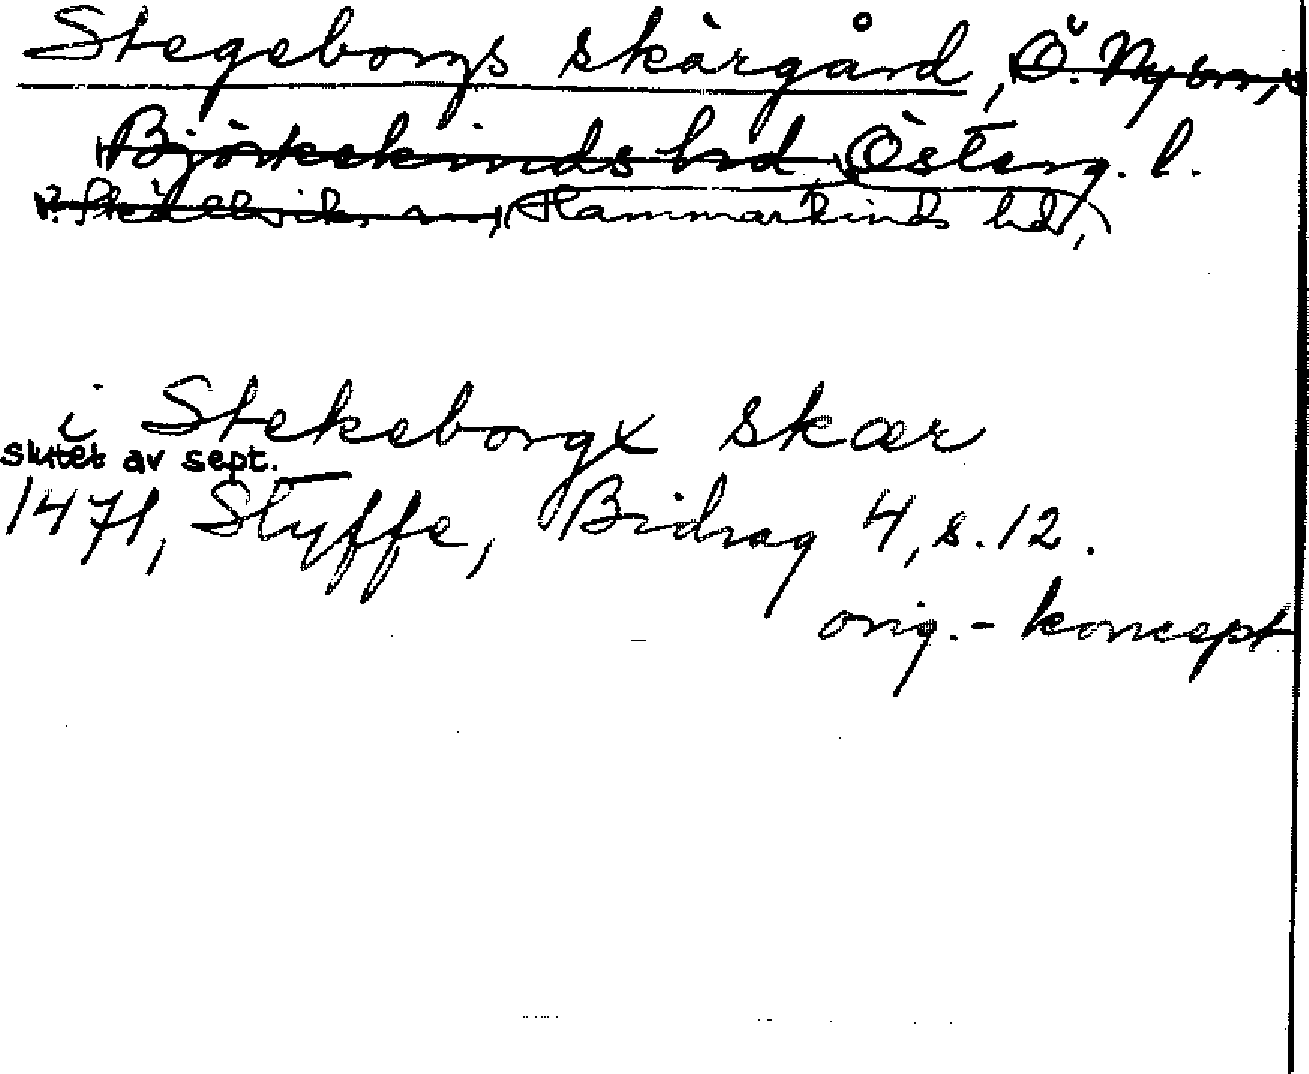 Stegeborgs skärgård, Ö. Ny
Björkekinds hd Österg. l.
Hammarkinds hd,
i Stekeborgx skær
slutet av sept.
1471, Styffe, Bidrag 4, s. 12.
orig.- koncept